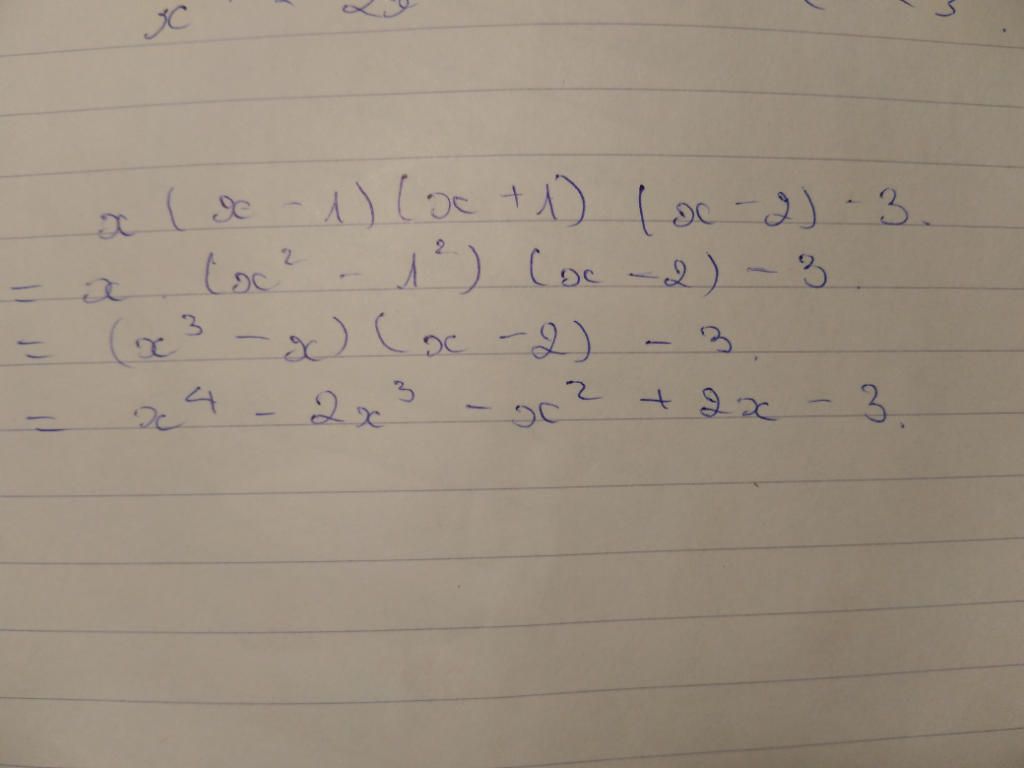 x(x-1)(x+1) (x-2)-3.
= x (x² - 1²) (x-2)-3.
= (x³ - x)(x-2) - 3.
= x⁴ - 2x³ - x² + 2x - 3.